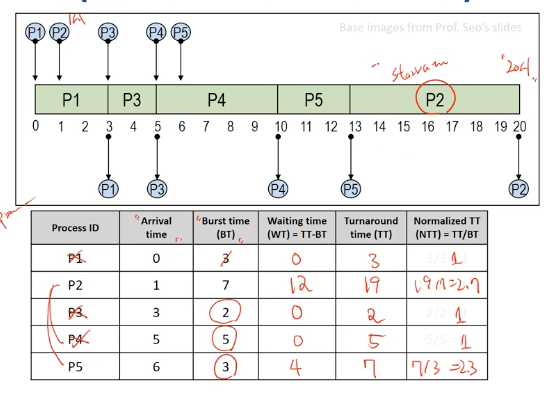 Base images from Prof. Seo's slides
P1 P2 P3 P4 P5
"starvation"
P1 P3 P4 P5 P2
0 1 2 3 4 5 6 7 8 9 10 11 12 13 14 15 16 17 18 19 20
P1 P3 P4 P5 P2
Process ID "Arrival time" "Burst time (BT) Waiting time (WT) = TT-BT Turnaround time (TT) Normalized TT (NTT) = TT/BT
P1 0 3 0 3 1
P2 1 7 12 19 19/7=2.7
P3 3 2 0 2 1
P4 5 5 0 5 1
P5 6 3 4 7 7/3 =2.3